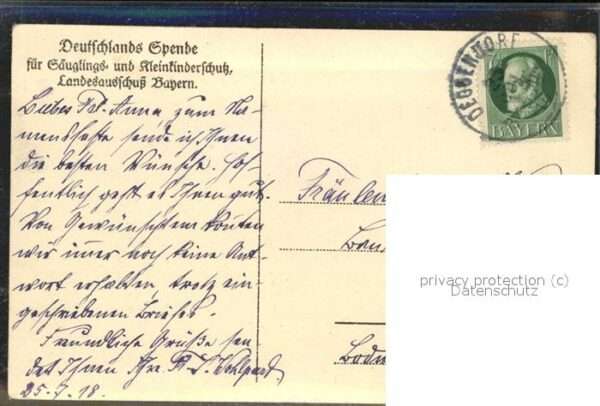 Deutschlands Spende
für Säuglings- und Kleinkinderschutz,
Landesausschuß Bayern.
Liebes Frl. Anna zum Na-
mensfeste sende ich Ihnen
die besten Wünsche. Hof-
fentlich geht es Ihnen gut.
Von Gewünschtem konten
wir imer noch keine Ant-
wort erhalten, trotz ein-
geschriebenen Briefes.
Freundliche Grüße sen-
det Ihnen Ihr
25-7-18.
DEGGENDORF
BAYERN
Fräulen
privacy protection (c)
Datenschutz